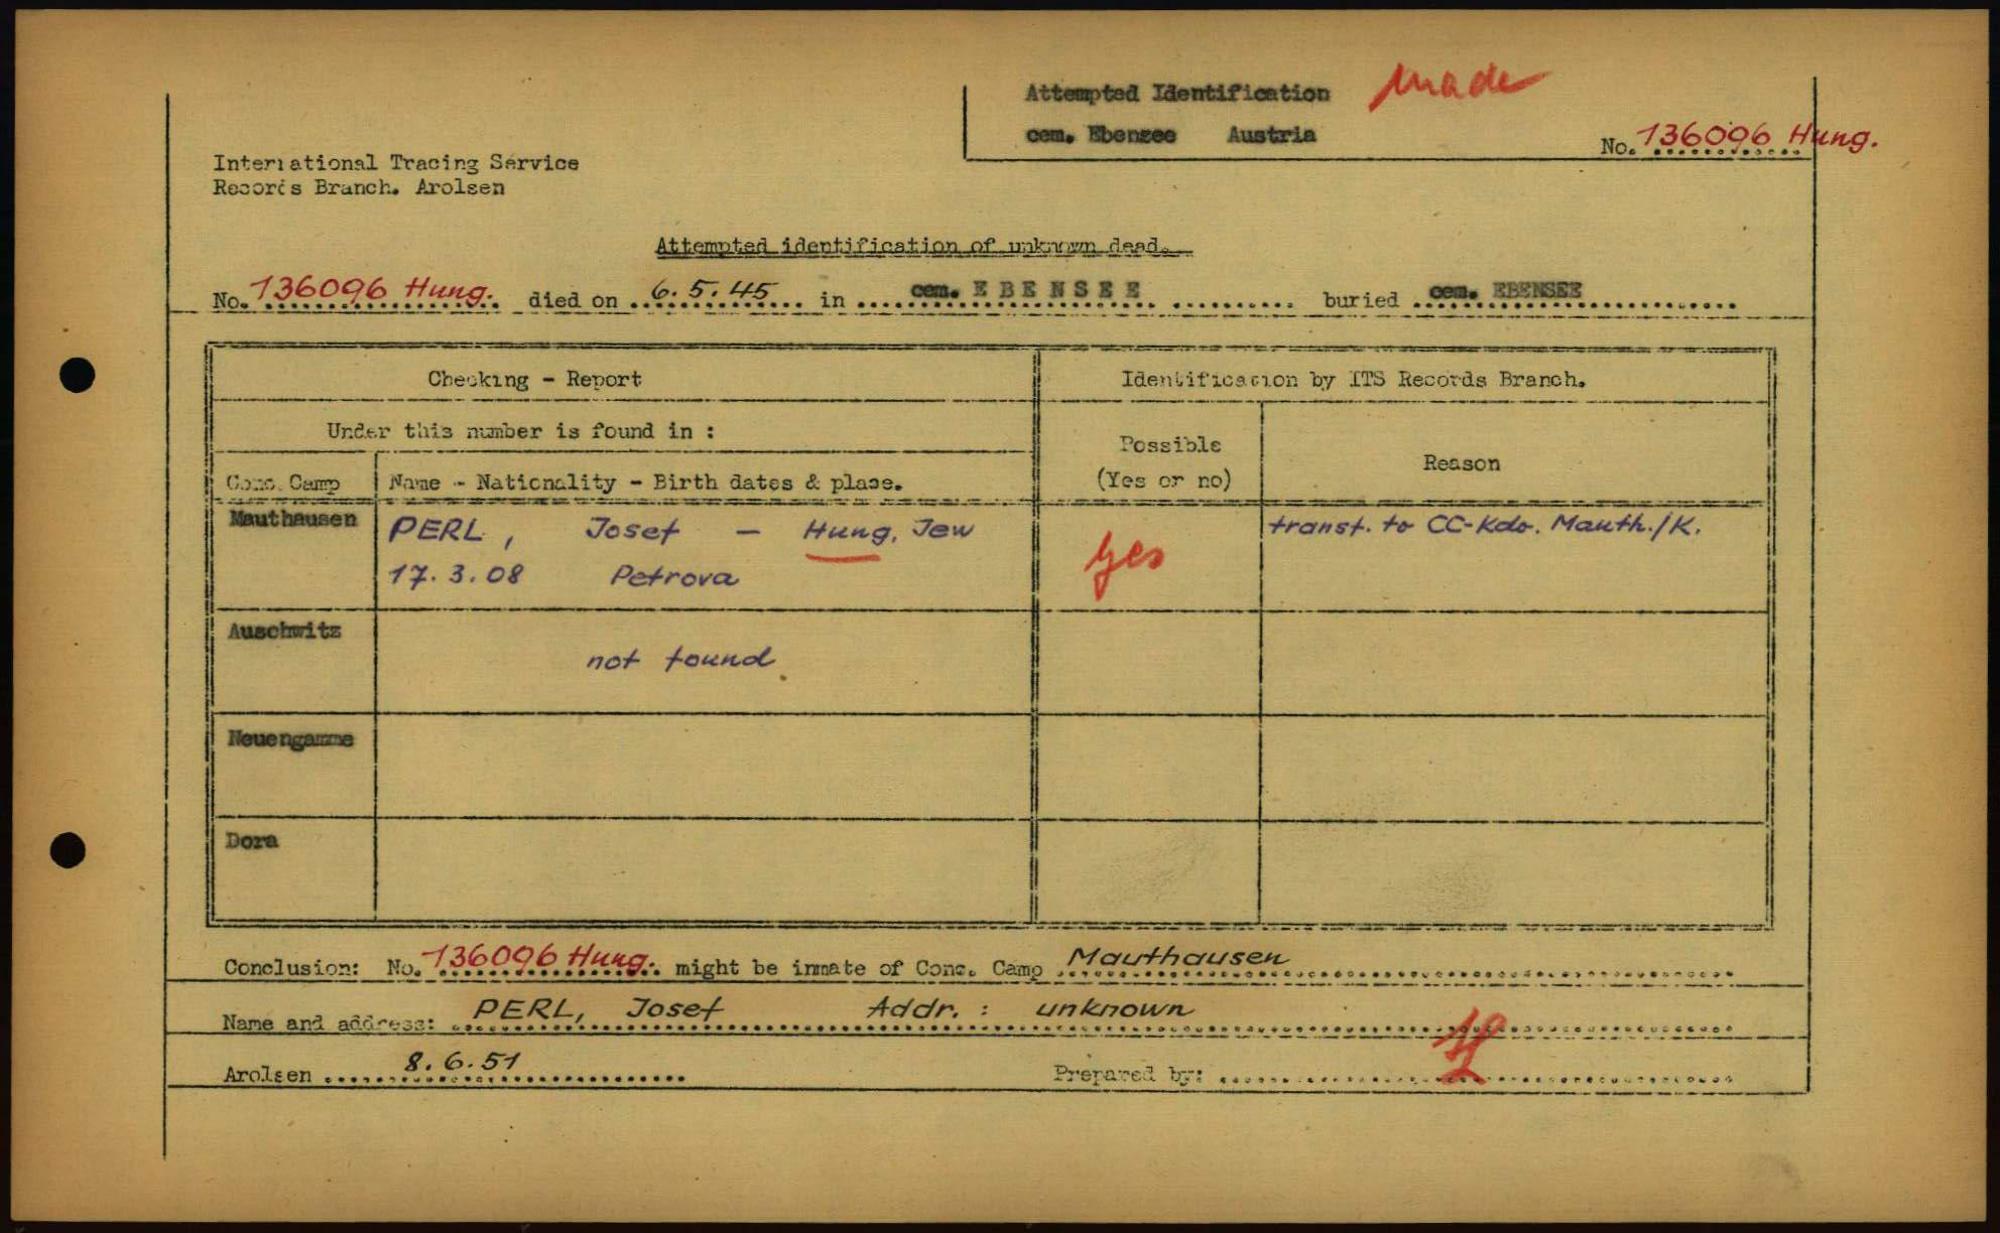 Attempted Identification made
cem. Ebensee Austria
No. 136096 Hung.
International Tracing Service
Records Branch. Arolsen
Attempted identification of unknown dead.
No. 136096 Hung. died on 6.5.45 in cem. EBENSEE buried cem. EBENSEE
Checking - Report
Identification by ITS Records Branch.
Under this number is found in :
Possible
(Yes or no)
Reason
Conc. Camp
Name - Nationality - Birth dates & place.
Mauthausen
PERL, Josef - Hung. Jew
17.3.08 Petrova
yes
transf. to CC-Kdo. Mauth./K.
Auschwitz
not found
Neuengamme
Dora
Conclusion: No. 136096 Hung. might be inmate of Conc. Camp Mauthausen
Name and address: PERL, Josef Addr. : unknown
Arolsen 8.6.51
Prepared by: